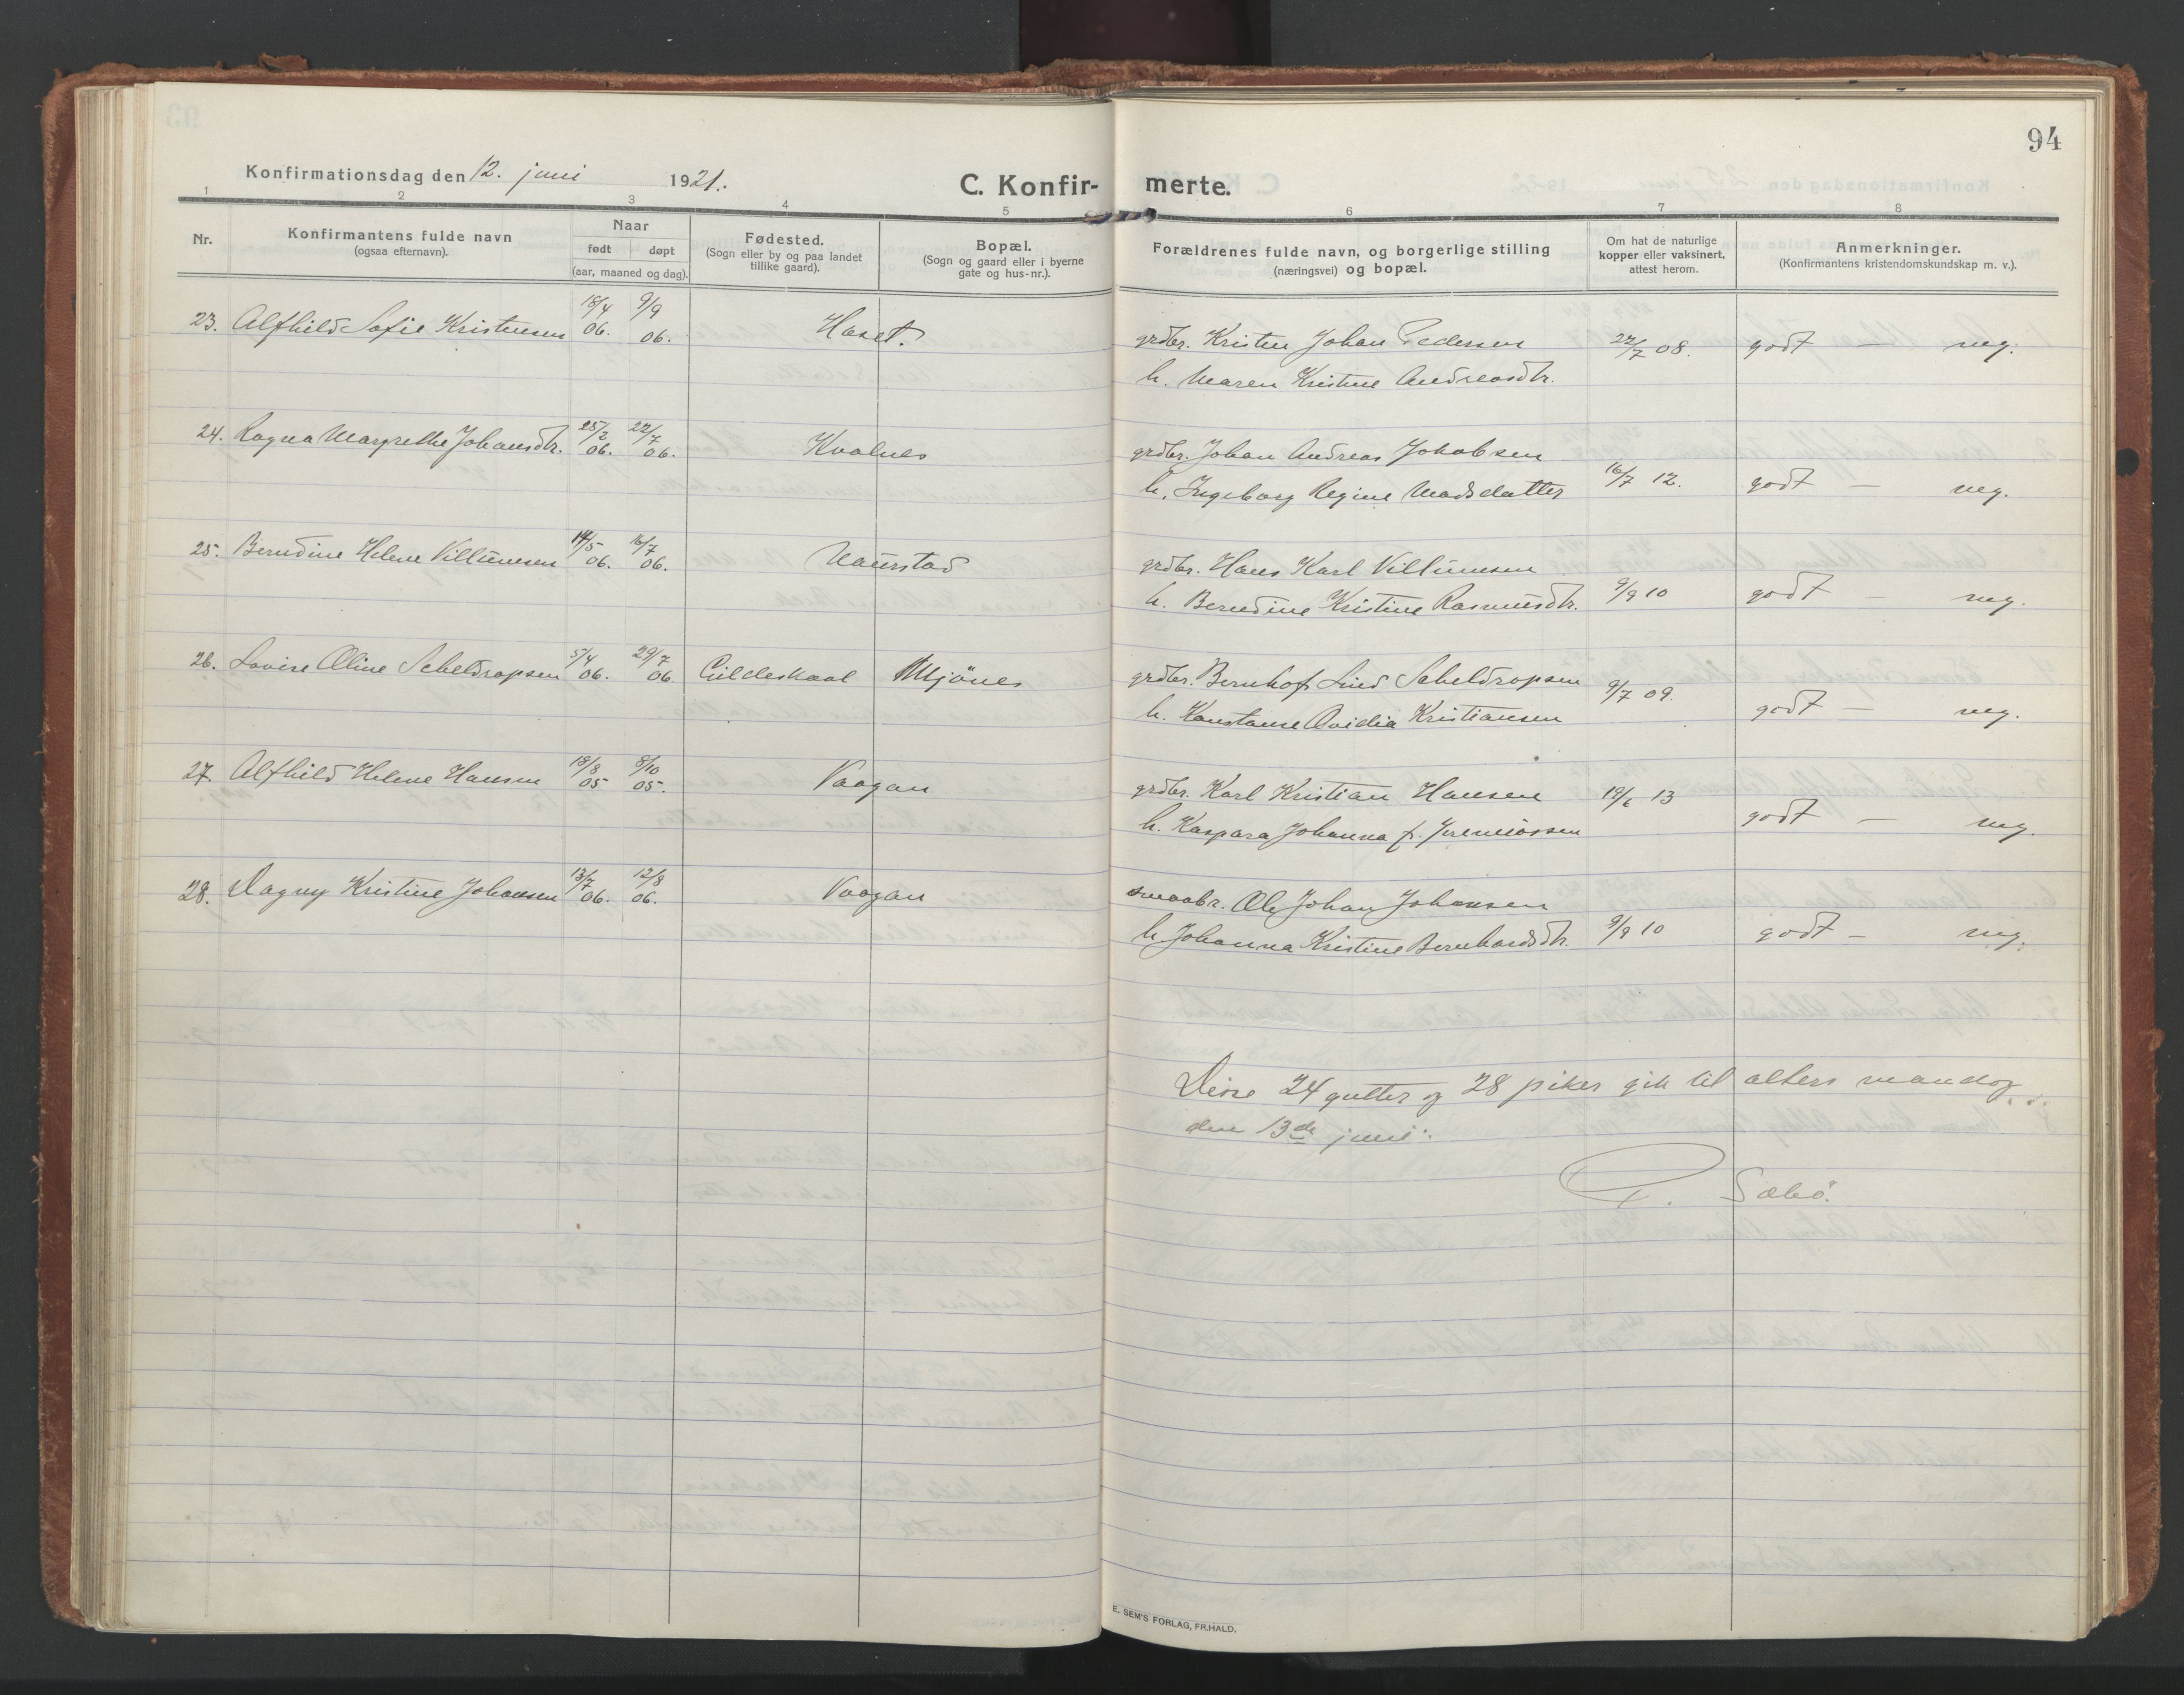 94
Konfirmationsdag den 12. juni 1921.
C. Konfir- merte.
1 2 3 4 5 6 7 8
Nr.
Konfirmantens fulde navn
(ogsaa efternavn).
Naar
født døpt
(aar, maaned og dag).
Fødested.
(Sogn eller by og paa landet
tillike gaard).
Bopæl.
(Sogn og gaard eller i byerne
gate og hus-nr.).
Forældrenes fulde navn, og borgerlige stilling
(næringsvei) og bopæl.
Om hat de naturlige
kopper eller vaksinert,
attest herom.
Anmerkninger.
(Konfirmantens kristendomskundskap m. v.).
23. Alfhild Sofie Kristensen 18/4 06. 9/9 06. Haset. grdbr. Kristen Johan Pedersen 22/7 08. godt — ng.
h. Maren Kristine Andreasdtr.
24. Ragna Margrethe Johansdtr. 25/2 06. 22/7 06. Kvalnes grdbr. Johan Andreas Jakobsen
h. Ingeborg Regine Madsdatter 16/7 12. godt — ng.
25. Berndine Helene Villumsen 14/5 06. 16/7 06. Naurstad grdbr. Hans Karl Villumsen
h. Berndine Kristine Rasmusdtr. 9/9 10 godt — ng.
26. Lovise Oline Scheldropsen 5/4 06. 29/7 06. Gildeskaal Mjönes grdbr. Bernhof Lind Scheldropsen 9/7 09.
h. Konstanse Ovidia Kristiansen godt — ng.
27. Alfhild Helene Hansen 18/8 05 8/10 05. Vaagan grdbr. Karl Kristian Hansen 19/6 13
h. Kaspara Johanna f. Jeremiassen godt — ng.
28. Dagny Kristine Johansen 13/7 06. 12/8 06. Vaagan smaabr. Ole Johan Johansen
h. Johanna Kristine Bernhardsdtr. 9/9 10 godt — ng.
Disse 24 gutter og 28 piker gik til alters mandag
den 13de juni.
P. Sæbö.
E. SEM'S FORLAG, FR.HALD.